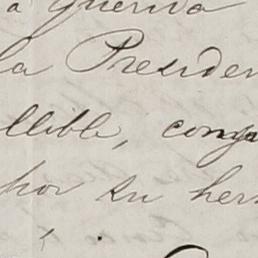 a guerra
la Presiden
llible, conga
hor su her